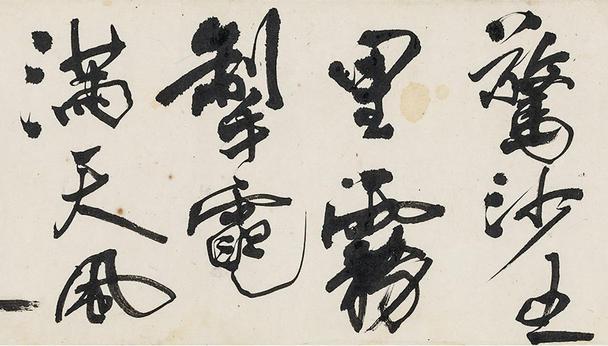 驚沙五
里霧
掣電
滿天風